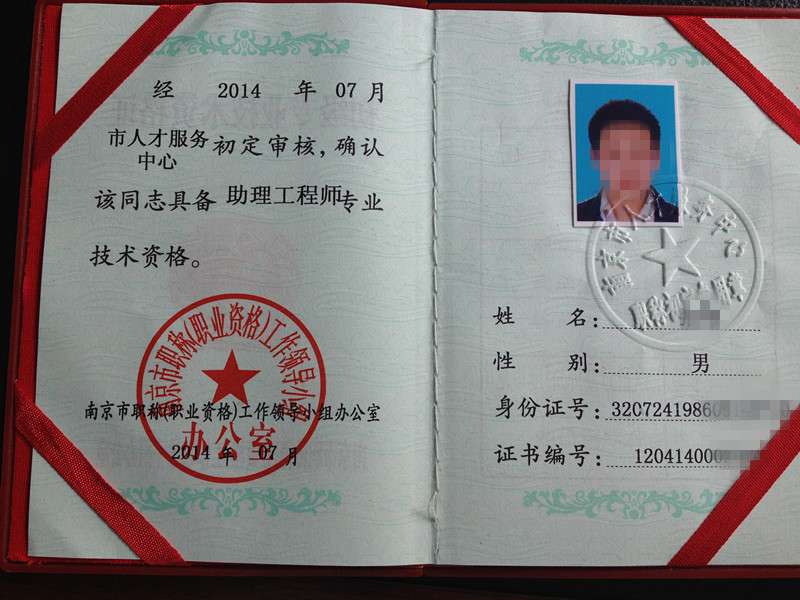 经 2014 年 07 月
市人才服务中心 初定审核，确认
该同志具备 助理工程师 专业
技术资格。
南京市职称(职业资格)工作领导小组
办公室
南京市职称(职业资格)工作领导小组办公室
2014 年 07 月
姓 名：
性 别： 男
身份证号： 32072419860
证书编号： 120414000